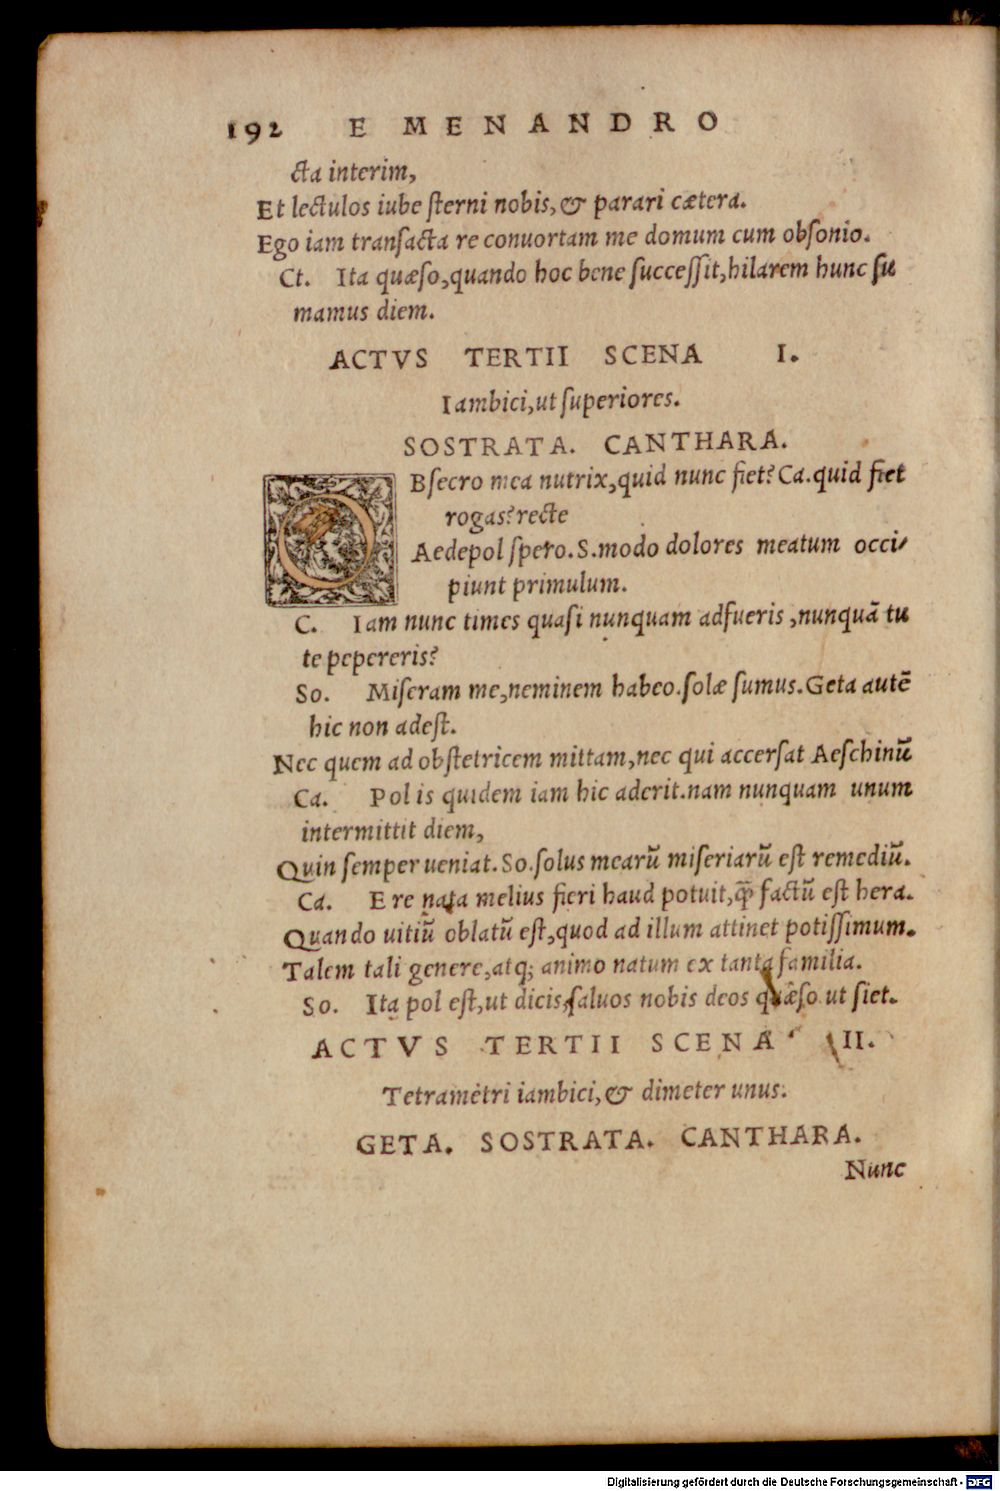 192 E MENANDRO
cta interim,
Et lectulos iube ſterni nobis, & parari cætera.
Ego iam tranſacta re conuortam me domum cum obſonio.
Ct. Ita quæſo, quando hoc bene ſucceſſit, hilarem hunc ſu
mamus diem.
ACTVS TERTII SCENA I.
Iambici, ut ſuperiores.
SOSTRATA. CANTHARA.
OBſecro mea nutrix, quid nunc fiet? Ca. quid fiet
rogas? recte
Aedepol ſpero. S. modo dolores meatum occi-
piunt primulum.
C. Iam nunc times quaſi nunquam adfueris, nunquã tu
te pepereris?
So. Miſeram me, neminem habeo. ſolæ ſumus. Geta autẽ
hic non adeſt.
Nec quem ad obſtetricem mittam, nec qui accerſat Aeſchinũ
Ca. Pol is quidem iam hic aderit. nam nunquam unum
intermittit diem,
Quin ſemper ueniat. So. ſolus mearũ miſeriarũ eſt remediũ.
Ca. E re nata melius fieri haud potuit, q̃ factũ eſt hera.
Quando uitiũ oblatũ eſt, quod ad illum attinet potiſſimum.
Talem tali genere, atq; animo natum ex tanta familia.
So. Ita pol eſt, ut dicis, ſaluos nobis deos quæſo ut ſiet.
ACTVS TERTII SCENA II.
Tetrametri iambici, & dimeter unus.
GETA. SOSTRATA. CANTHARA.
Nunc
Digitalisierung gefördert durch die Deutsche Forschungsgemeinschaft - DFG